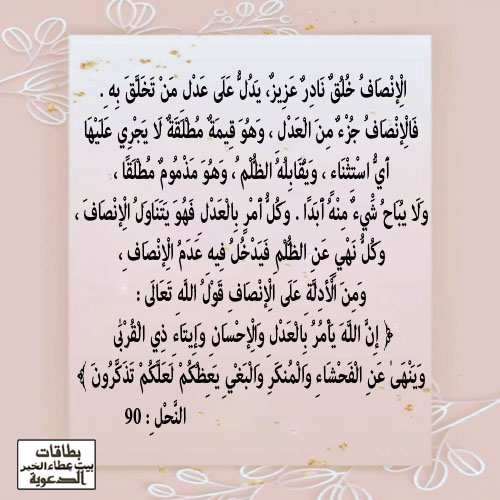 الْإِنْصَافُ خُلُقٌ نَادِرٌ عَزِيزٌ، يَدُلُّ عَلَى عَدْلِ مَنْ تَخَلَّقَ بِهِ .
فَالْإِنْصَافُ جُزْءٌ مِنَ الْعَدْلِ ، وَهُوَ قِيمَةٌ مُطْلَقَةٌ لَا يَجْرِي عَلَيْهَا
أَيُّ اسْتِثْنَاءٍ ، وَيُقَابِلُهُ الظُّلْمُ ، وَهُوَ مَذْمُومٌ مُطْلَقًا ،
وَلَا يُبَاحُ شَيْءٌ مِنْهُ أَبَدًا . وَكُلُّ أَمْرٍ بِالْعَدْلِ فَهُوَ يَتَنَاوَلُ الْإِنْصَافَ ،
وَكُلُّ نَهْيٍ عَنِ الظُّلْمِ فَيَدْخُلُ فِيهِ عَدَمُ الْإِنْصَافِ ،
وَمِنَ الْأَدِلَّةِ عَلَى الْإِنْصَافِ قَوْلُ اللَّهِ تَعَالَى :
﴿ إِنَّ اللَّهَ يَأْمُرُ بِالْعَدْلِ وَالْإِحْسَانِ وَإِيتَاءِ ذِي الْقُرْبَىٰ
وَيَنْهَىٰ عَنِ الْفَحْشَاءِ وَالْمُنكَرِ وَالْبَغْيِ يَعِظُكُمْ لَعَلَّكُمْ تَذَكَّرُونَ ﴾
النَّحْلِ : 90
بطاقات
بيت عطاء الخير
الدعوية